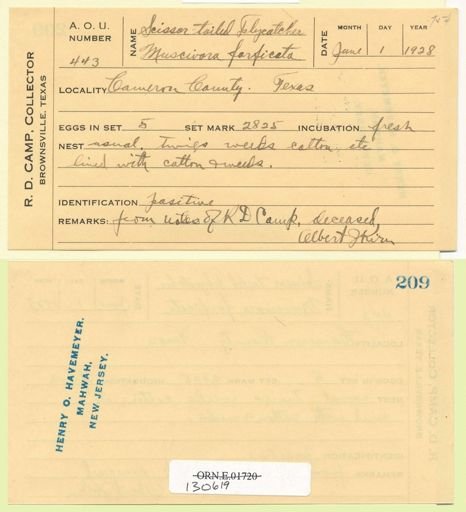 R. D. CAMP, COLLECTOR
BROWNSVILLE, TEXAS
A. O. U.
NUMBER
443
NAME Scissor tailed Flycatcher
Muscivora forficata
DATE MONTH DAY YEAR
June 1 1928
LOCALITY Cameron County. Texas
EGGS IN SET 5 SET MARK 2825 INCUBATION fresh
NEST usual, twigs weeds cotton, etc
lined with cotton & weeds.
IDENTIFICATION positive
REMARKS: from notes of R D Camp, deceased
Albert J Kirn
209
HENRY O. HAVEMEYER.
MAHWAH,
NEW JERSEY.
ORN.E.01720
130619